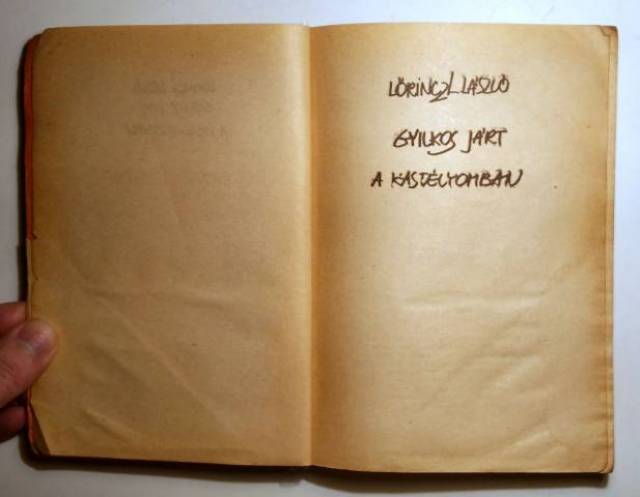 LŐRINCZ L. LÁSZLÓ
GYILKOS JÁRT
A KASTÉLYOMBAN